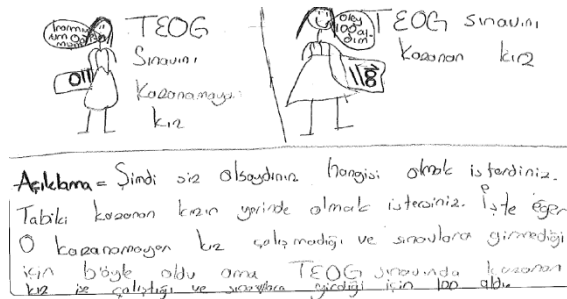 TEOG
Sınavını
Kazanamayan
kız
TEOG sınavını
kazanan kız
Oley
100 al
dım
Açıklama = Şimdi siz olsaydınız hangisi olmak isterdiniz.
Tabiki kazanan kızın yerinde olmak istersiniz. İşte eğer
O kazanamayan kız çalışmadığı ve sınavlara girmediği
için böyle oldu ama TEOG sınavında kazanan
kız ise çalıştığı ve sınavlara girdiği için 100 aldı.